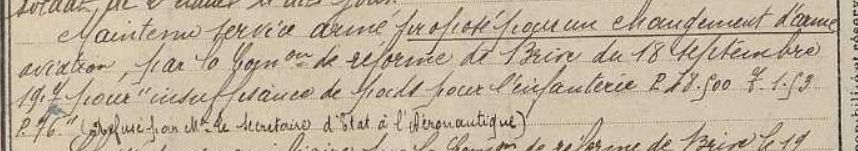 soldat, de 2e classe
Maintenu service armé proposé pour un changement d'arme
aviation, par la Comon de réforme de Brive du 18 septembre
19 pour "insuffisance de poids pour l'infanterie P. 48.500 T. 1.53
P. 76." (Refusé par Mr le secrétaire d'Etat à l'Aéronautique)
de réforme de Brive le 19